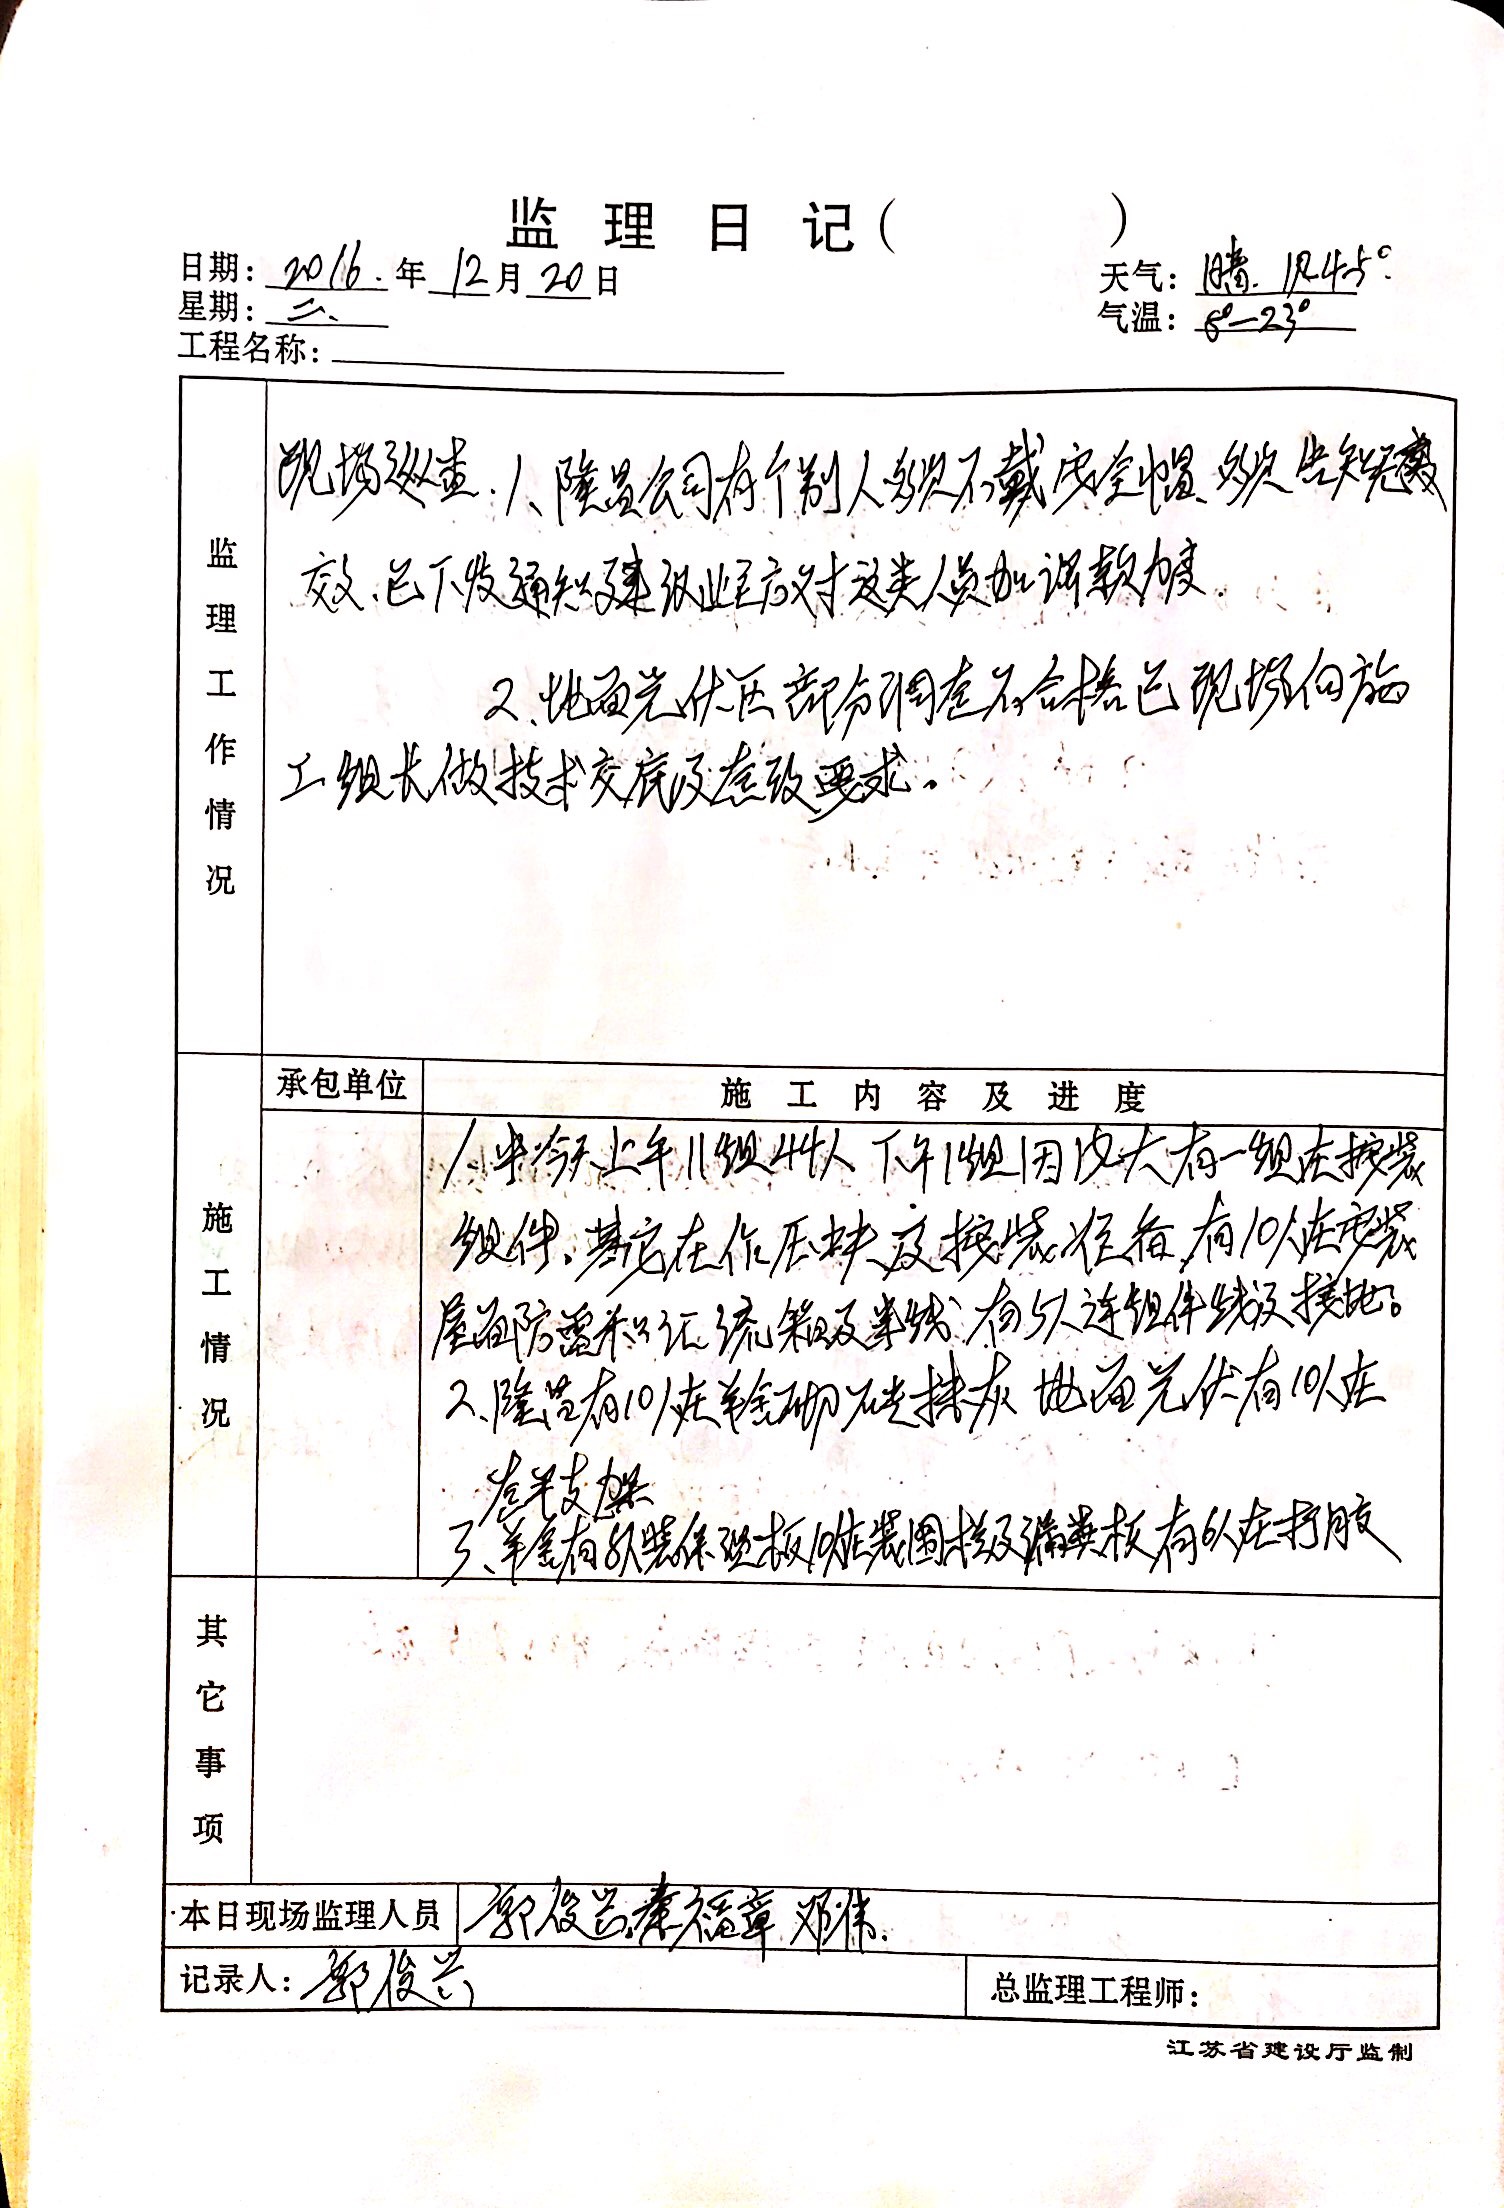 监理日记（ ）
日期：2016.年12月20日 天气：晴.风4-5°.
星期：二. 气温：8°—23°
工程名称：
监理工作情况
现场巡查.1、隆昌公司有个别人多次不戴安全帽、多次告知无
效、已下发通知及建议业主应对这类人员加 罚款力度.
2、地面光伏区部分调查不合格已现场向施
工组长做技术交底及整改要求。
施工情况
承包单位 施工内容及进度
1、 今天上午11组44人 下午1组因 大有一组在按装
组件、其它在作压块及按装准备、有10人在安装
屋面防雷和汇流箱及 线、有5人连组件线及接地。
2、隆昌有10人在羊舍砌 抹灰 地面光伏有10人在
支架
3、羊舍有8人装保温板10人在装围栏及漏粪板有6人在打胶
其它事项
本日现场监理人员 郭俊兴.秦福章 邓伟.
记录人：郭俊兴 总监理工程师：
江苏省建设厅监制